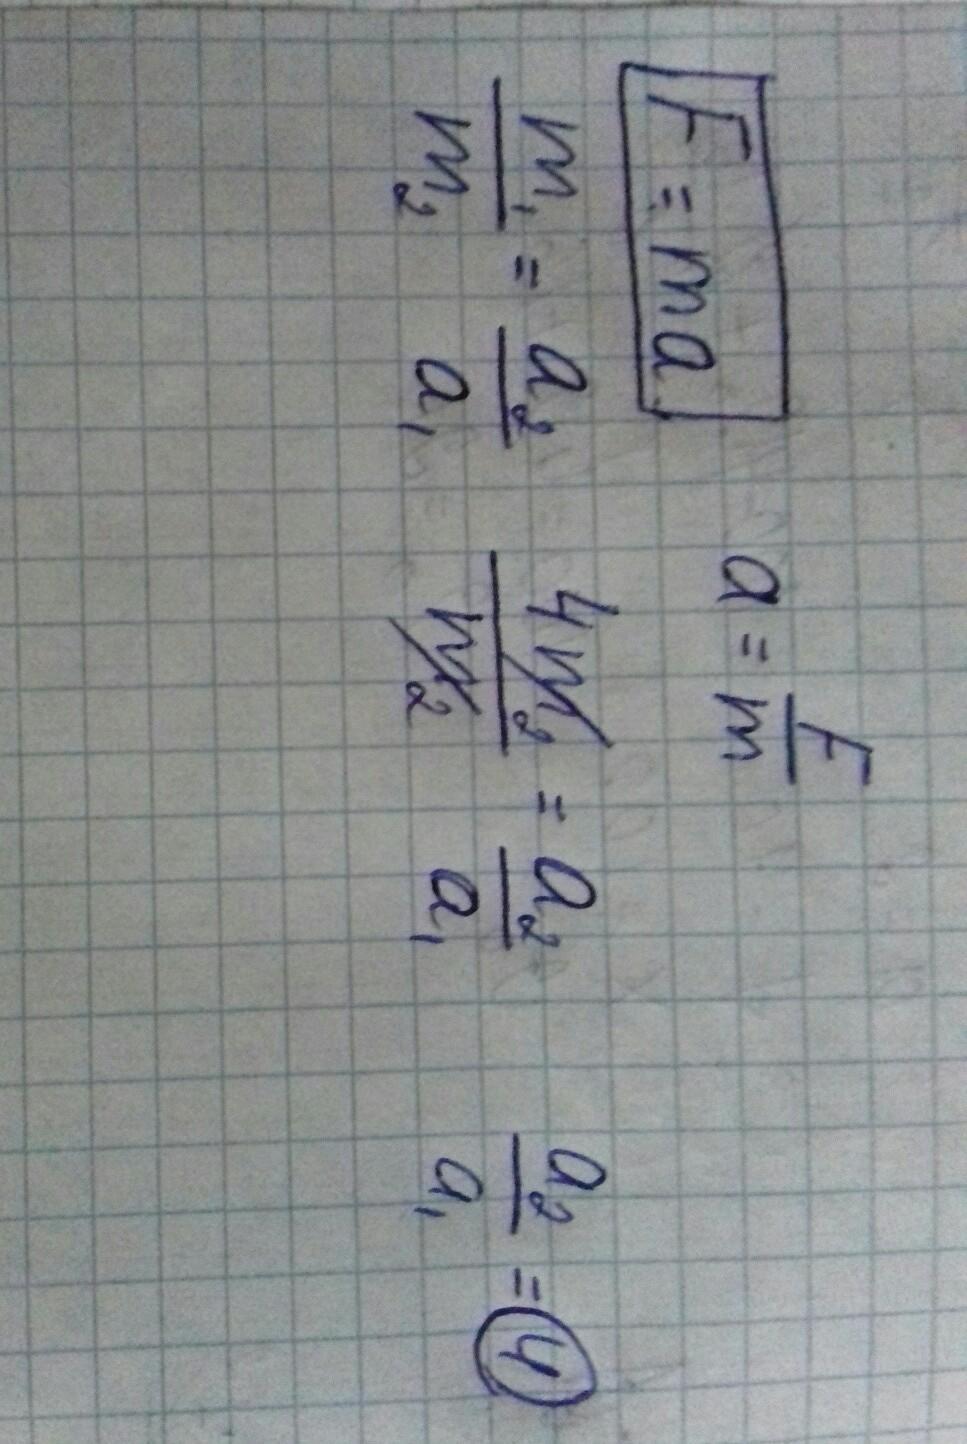 F = ma
a = F/m
m₁/m₂ = a₂/a₁ 4m₂/m₂ = a₂/a₁ a₂/a₁ = 4